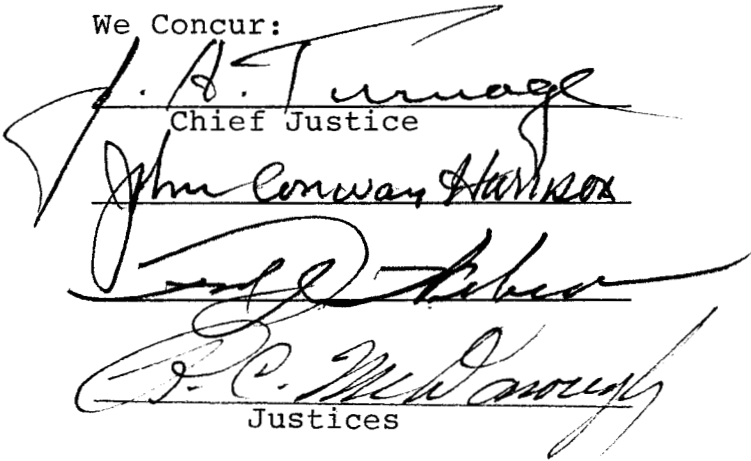 We Concur:
J. A. Turnage
Chief Justice
John Conway Harrison
R. C. McDonough
Justices